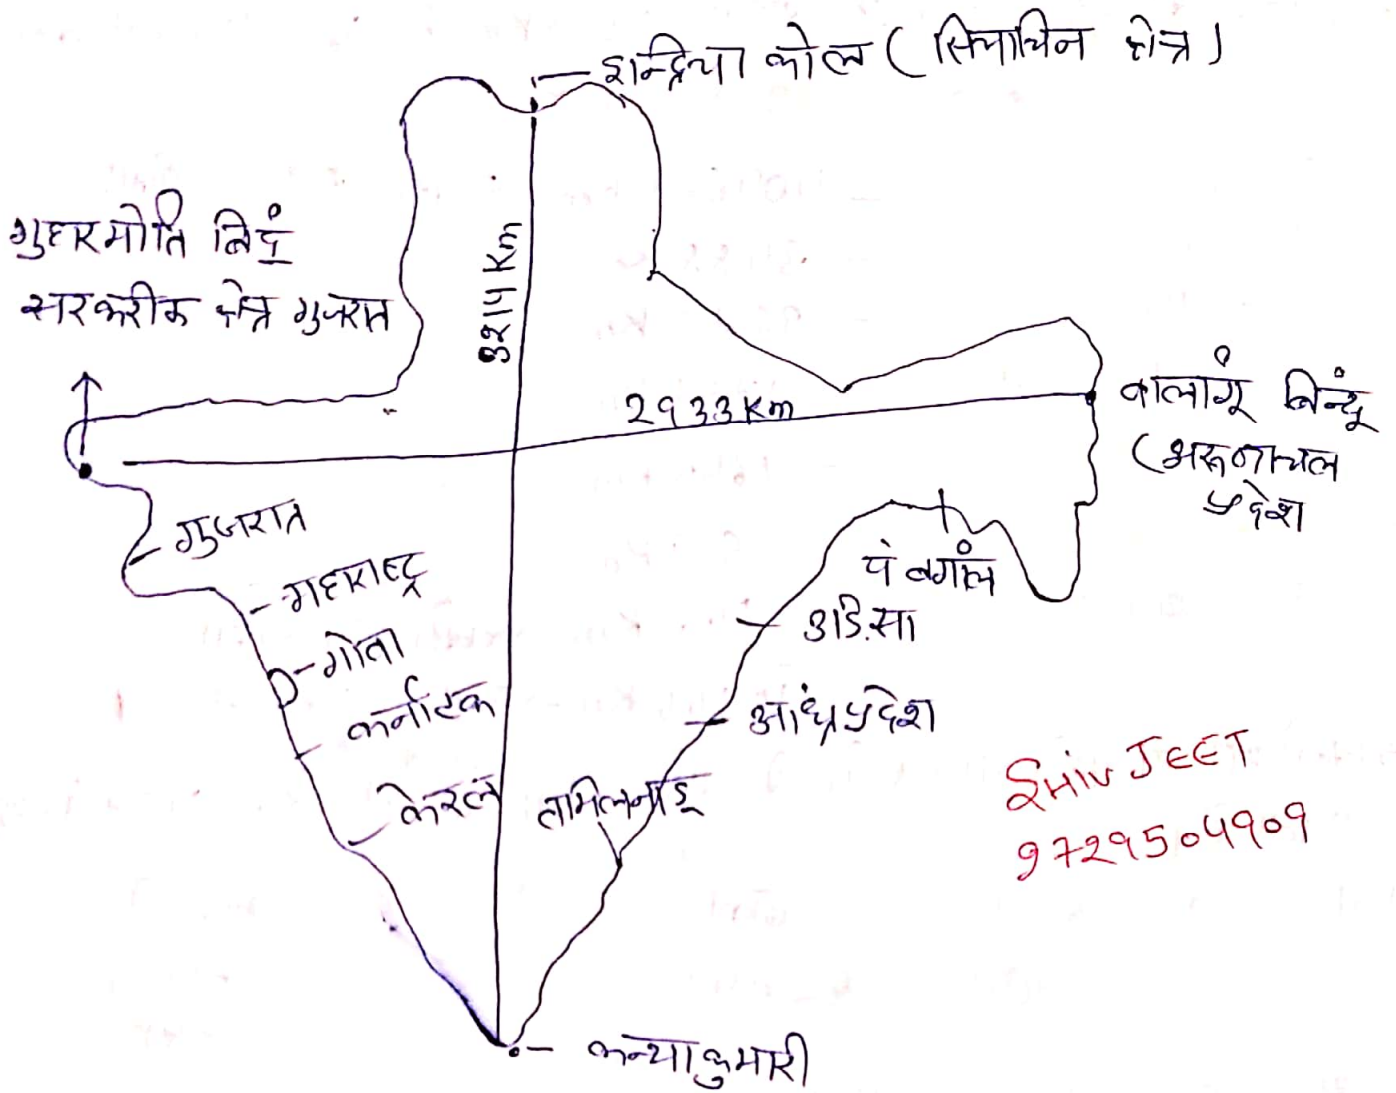 इन्द्रिया कोल (सियाचिन क्षेत्र)
गुहरमोति बिंदु
सरकरीक क्षेत्र गुजरात
3214 Km
2933 Km
वालांगू बिन्दू
(अरूणाचल
प्रदेश
गुजरात
महाराष्ट्र
गोवा
कर्नाटक
केरल
तामिलनाडू
पं बगांल
उडि.सा
आंध्रप्रदेश
कन्याकुमारी
SHiv JEET
9729504909